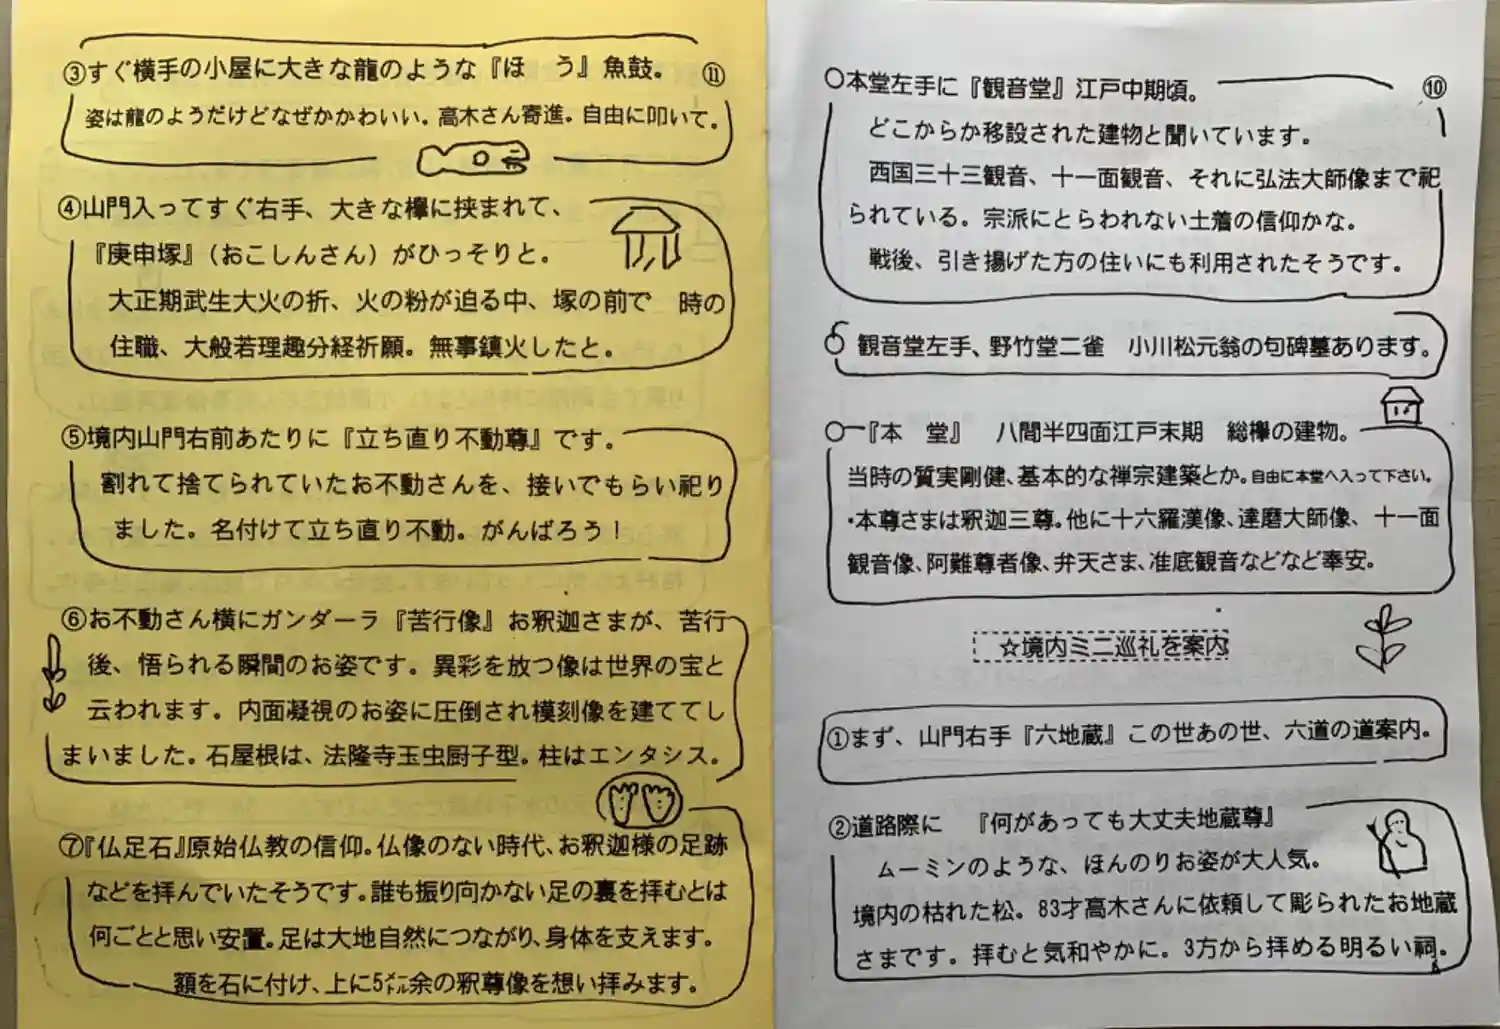 ○本堂左手に『観音堂』江戸中期頃。 ⑩
どこからか移設された建物と聞いています。
西国三十三観音、十一面観音、それに弘法大師像まで祀
られている。宗派にとらわれない土着の信仰かな。
戦後、引き揚げた方の住いにも利用されたそうです。
○観音堂左手、野竹堂二雀 小川松元翁の句碑墓あります。
○『本 堂』 八間半四面江戸末期 総欅の建物。
当時の質実剛健、基本的な禅宗建築とか。自由に本堂へ入って下さい。
・本尊さまは釈迦三尊。他に十六羅漢像、達磨大師像、十一面
観音像、阿難尊者像、弁天さま、准底観音などなど奉安。
☆境内ミニ巡礼を案内
①まず、山門右手『六地蔵』この世あの世、六道の道案内。
②道路際に 『何があっても大丈夫地蔵尊』
ムーミンのような、ほんのりお姿が大人気。
境内の枯れた松。83才高木さんに依頼して彫られたお地蔵
さまです。拝むと気和やかに。3方から拝める明るい祠。
③すぐ横手の小屋に大きな龍のような『ほ う』魚鼓。 ⑪
姿は龍のようだけどなぜかかわいい。高木さん寄進。自由に叩いて。
④山門入ってすぐ右手、大きな欅に挟まれて、
『庚申塚』（おこしんさん）がひっそりと。
大正期武生大火の折、火の粉が迫る中、塚の前で 時の
住職、大般若理趣分経祈願。無事鎮火したと。
⑤境内山門右前あたりに『立ち直り不動尊』です。
割れて捨てられていたお不動さんを、接いでもらい祀り
ました。名付けて立ち直り不動。がんばろう！
⑥お不動さん横にガンダーラ『苦行像』お釈迦さまが、苦行
後、悟られる瞬間のお姿です。異彩を放つ像は世界の宝と
云われます。内面凝視のお姿に圧倒され模刻像を建ててし
まいました。石屋根は、法隆寺玉虫厨子型。柱はエンタシス。
⑦『仏足石』原始仏教の信仰。仏像のない時代、お釈迦様の足跡
などを拝んでいたそうです。誰も振り向かない足の裏を拝むとは
何ごとと思い安置。足は大地自然につながり、身体を支えます。
額を石に付け、上に5㍍余の釈尊像を想い拝みます。